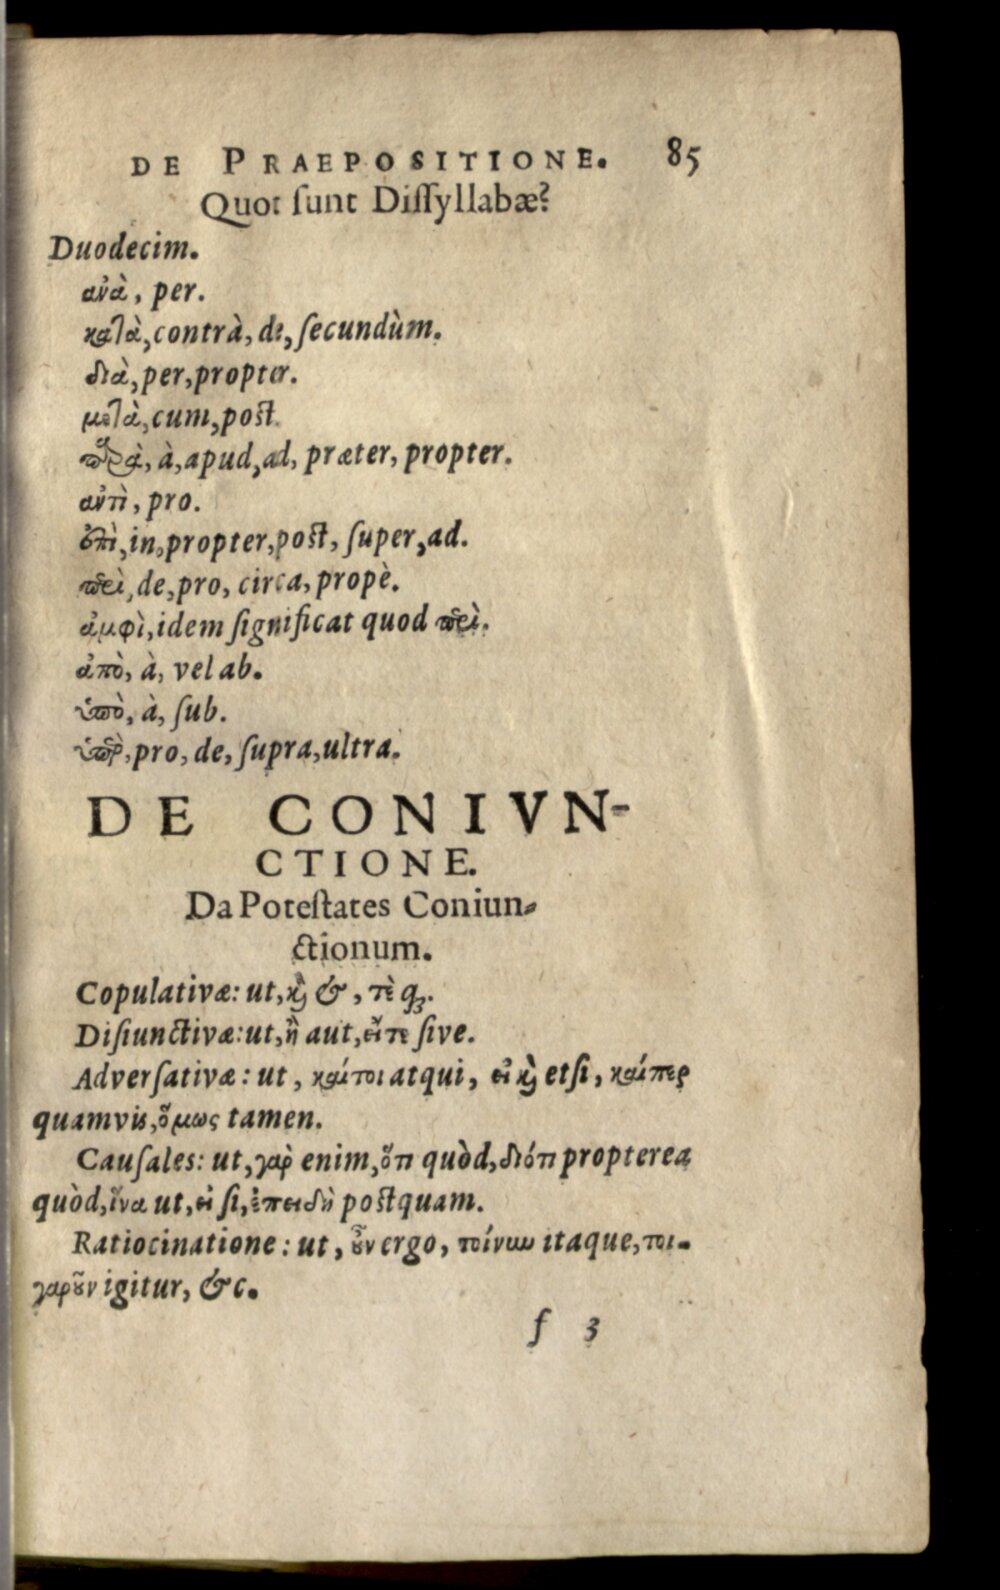 DE PRAEPOSITIONE. 85
Quot ſunt Diſſyllabæ?
Duodecim.
ἀνὰ, per.
κατὰ, contrà, de, ſecundùm.
διὰ, per, propter.
μετὰ, cum, post.
παρὰ, à, apud, ad, præter, propter.
ἀντὶ, pro.
ἐπὶ, in, propter, post, ſuper, ad.
περὶ, de, pro, circa, propè.
ἀμφὶ, idem ſignificat quod περὶ.
ἀπὸ, à, vel ab.
ὑπὸ, à, ſub.
ὑπὲρ, pro, de, ſupra, ultra.
DE CONIVN-
CTIONE.
Da Poteſtates Coniun-
ctionum.
Copulativæ: ut, καὶ &, τὲ q;.
Diſiunctivæ: ut, ἢ aut, εἴτε ſive.
Adverſativæ: ut, καίτοι atqui, εἰ καὶ etſi, καίπερ
quamvis, ὅμως tamen.
Cauſales: ut, γὰρ enim, ὅτι quòd, διότι propterea
quòd, ἵνα ut, εἰ ſi, ἐπειδὴ postquam.
Ratiocinatione: ut, οὖν ergo, τοίνυν itaque, τοι-
γαροῦν igitur, &c.
f 3